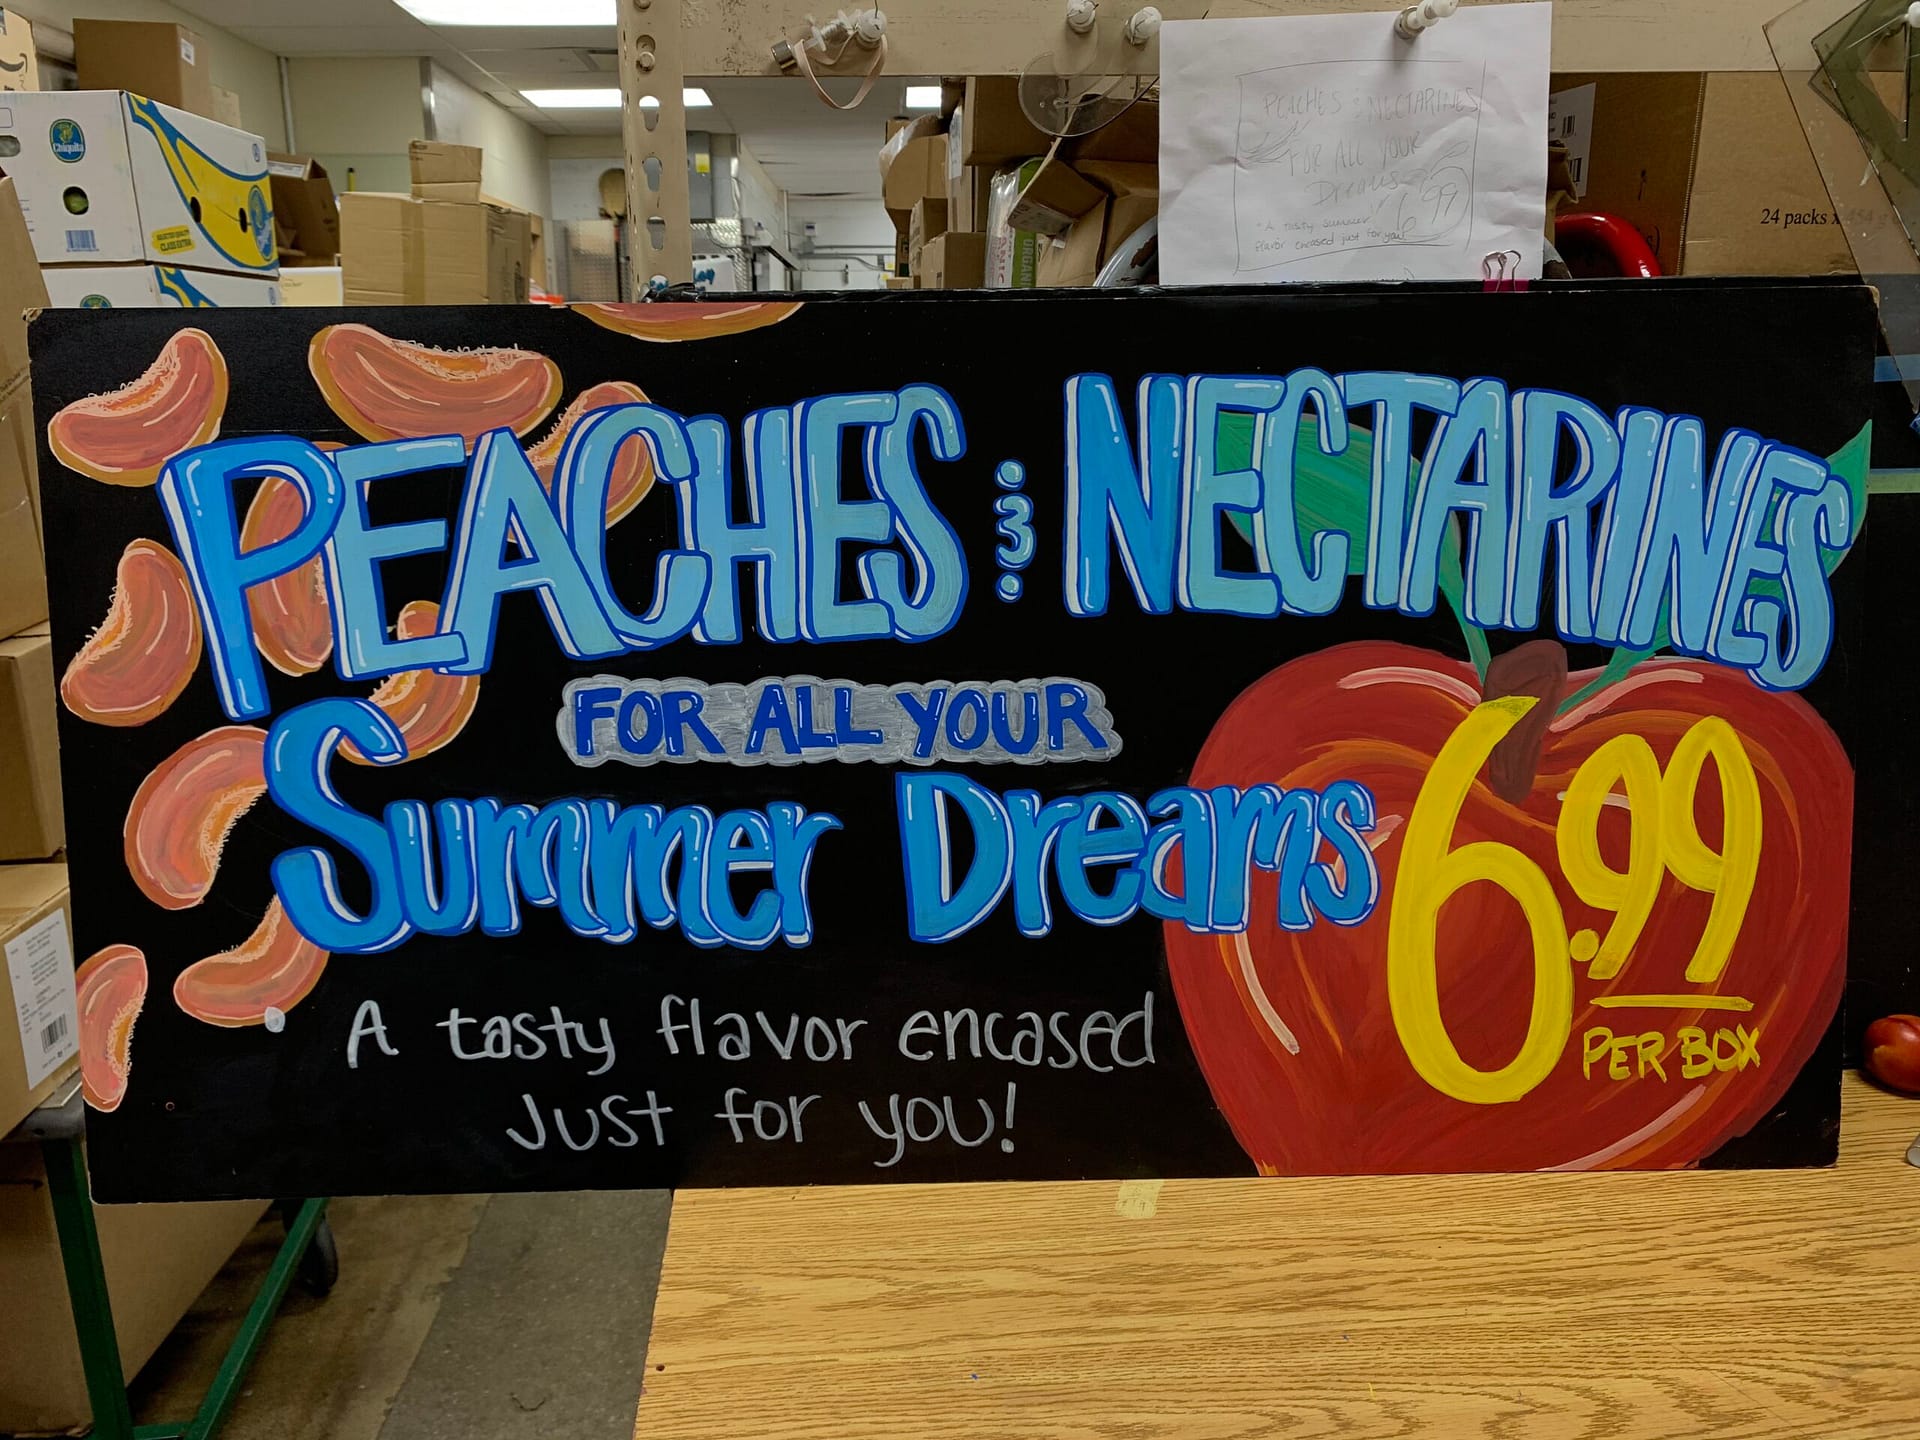 Chiquita
PEACHES & NECTARINES
FOR ALL YOUR
Dreams
6.99
* A tasty summer
flavor encased just for you!
24 packs x 454 g
ORGANIC
PEACHES & NECTARINES
FOR ALL YOUR
Summer Dreams
6.99
PER BOX
A tasty flavor encased
Just for you!